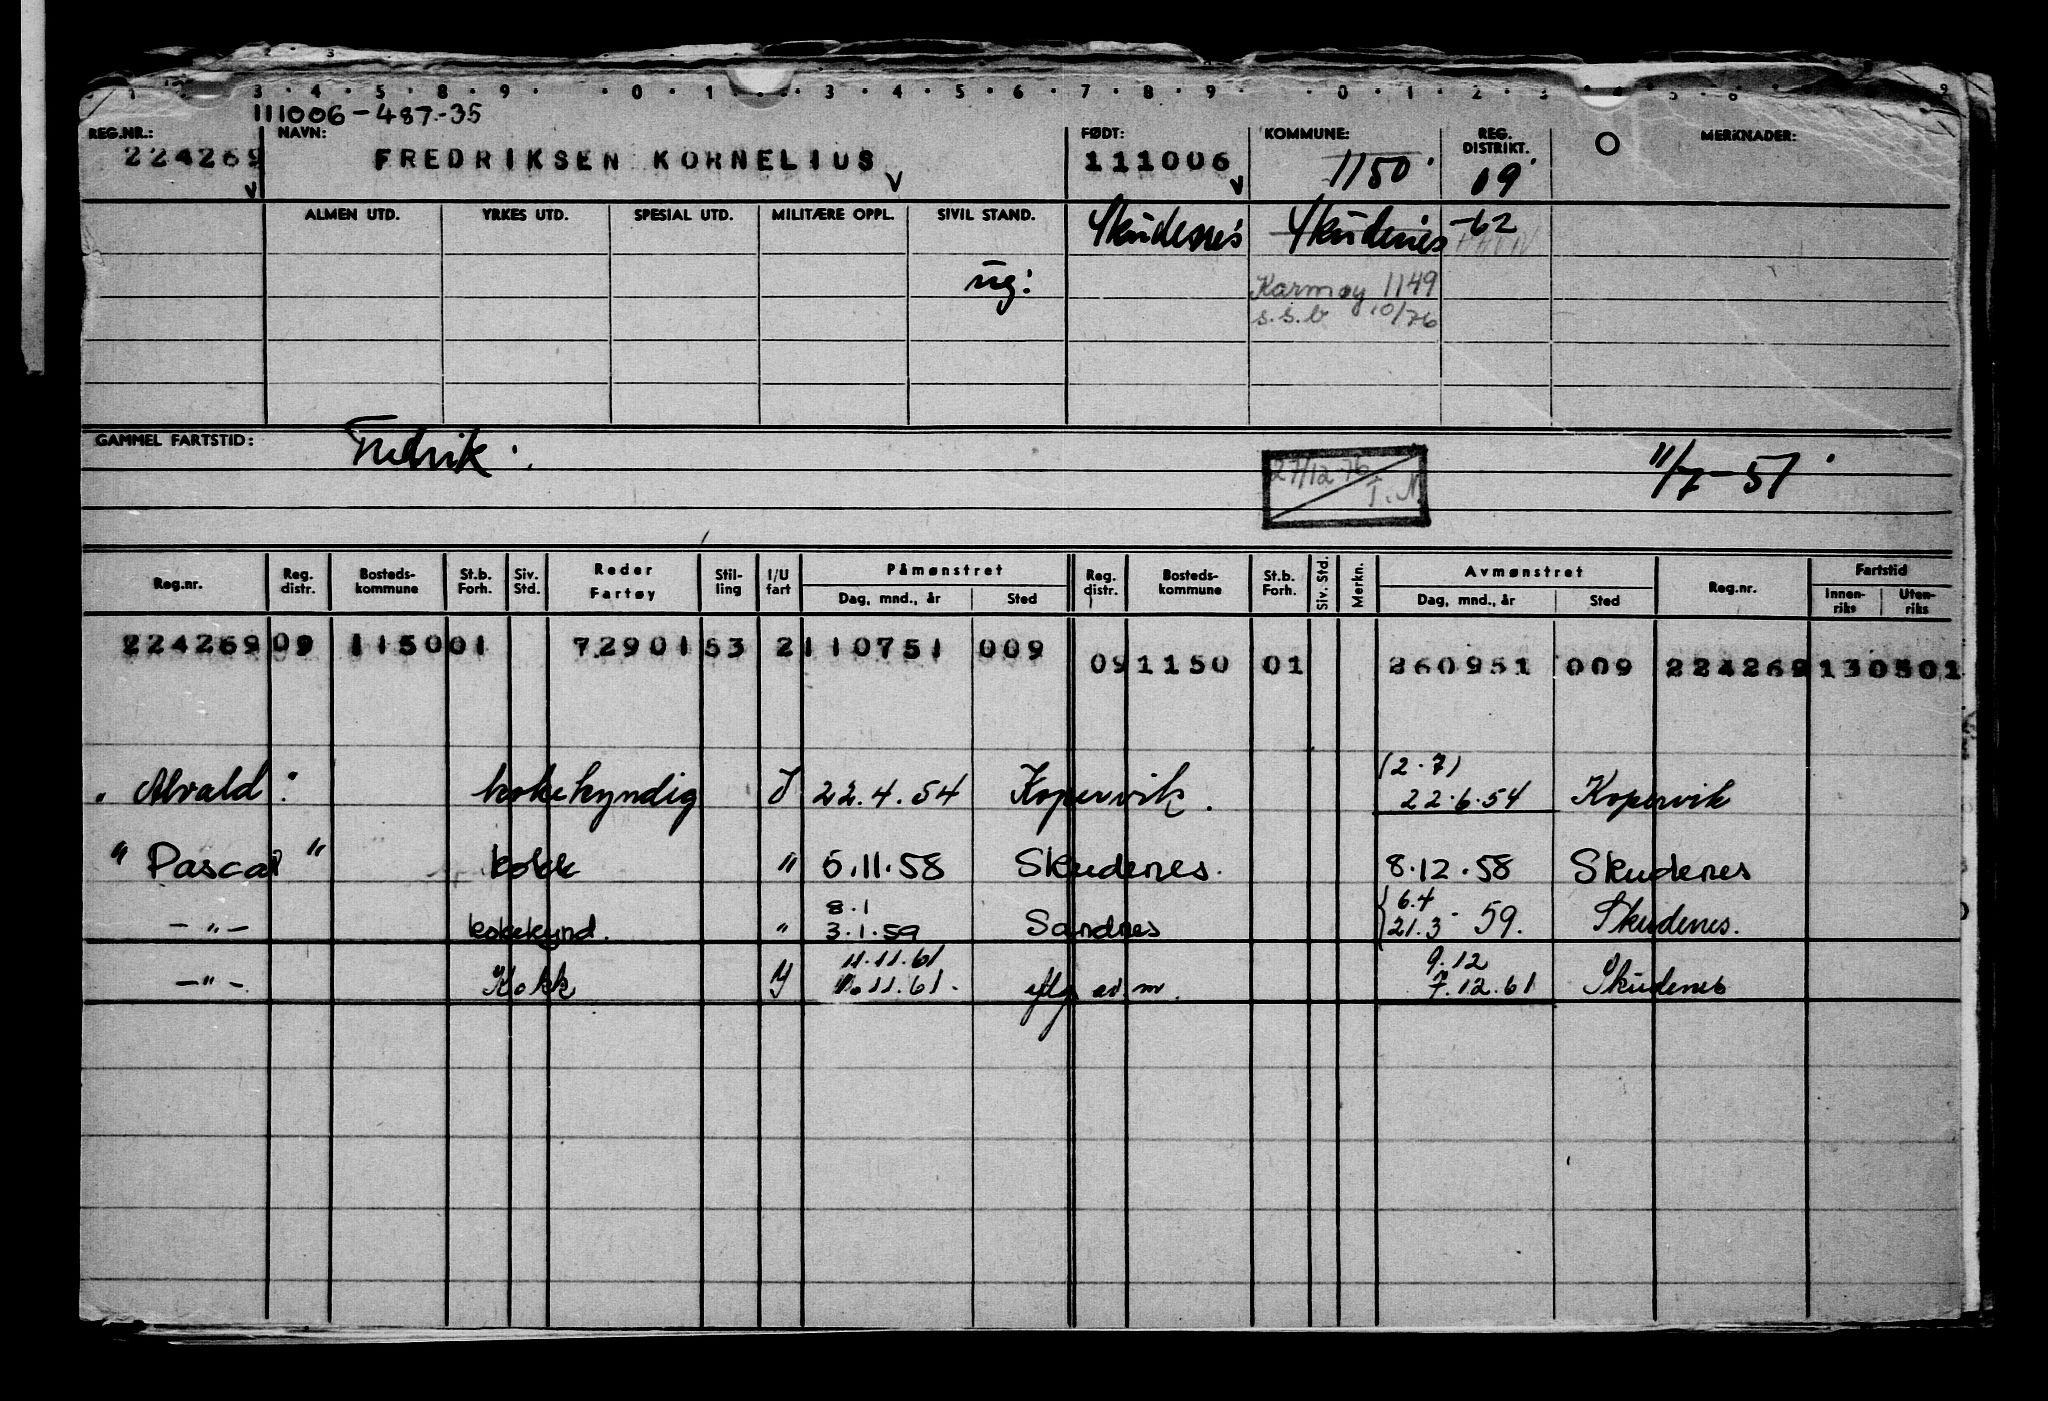 111006-487.-35
REG.NR.: NAVN: FØDT: KOMMUNE: REG. DISTRIKT. MERKNADER:
224269 FREDRIKSEN KORNELIUS 111006 1150 09
ALMEN UTD. YRKES UTD. SPESIAL UTD. MILITÆRE OPPL. SIVIL STAND. Skudenes Skudenes -62
ug: Karmøy 1149
s.s.b 10/76
GAMMEL FARTSTID: Fredrik. 27/12 76 T.N. 11/7-51
Reg.nr. Reg. distr. Bosteds-kommune St.b. Forh. Siv. Std. Reder Fartøy Stil-ling I/U fart Påmønstret Dag, mnd., år Sted Reg. distr. Bosteds-kommune St.b. Forh. Siv. Std. Merkn. Avmønstret Dag, mnd., år Sted Reg.nr. Fartstid Innen-riks Uten-riks
224269 09 1150 01 72901 53 2 110751 009 09 1150 01 260951 009 224269 130501
(2.7)
"Alvald" kokekyndig I 22.4.54 Kopervik. 22.6.54 Kopervik
"Pascal" kokk " 5.11.58 Skudenes. 8.12.58 Skudenes
8.1 6.4
-"- kokekynd. " 3.1.59 Sandnes 21.3 59. Skudenes.
11.11.61 9.12
-"- Kokk 11.61. av m. 7.12.61 Skudenes